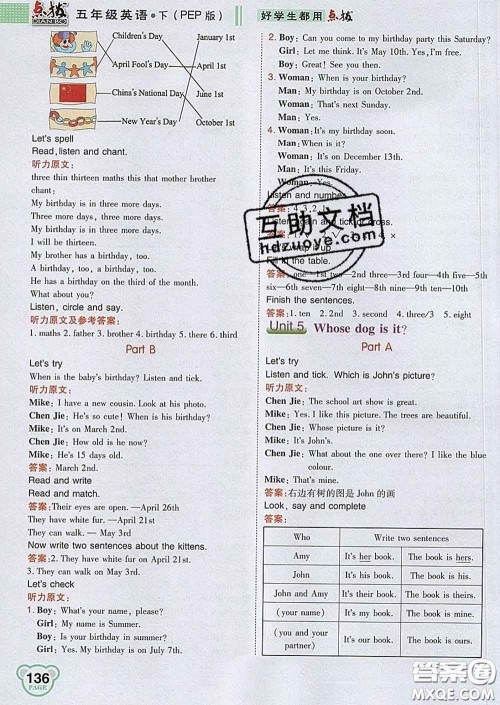 点拨
DIAN BO
五年级英语·下（PEP版）
Children's Day
January 1st
April Fool's Day
April 1st
China's National Day
June 1st
New Year's Day
October 1st
Let's spell
Read, listen and chant.
听力原文:
three thin thirteen maths this that mother brother
chant:
My birthday is in three more days.
Three more days, three more days.
My birthday is in three more days.
I will be thirteen.
My brother has a birthday, too.
A birthday, too, a birthday, too.
He has a birthday on the third of the month.
What about you?
Listen, circle and say.
听力原文及参考答案:
1. maths 2. father 3. brother 4. birthday 5. there 6. third
Part B
Let's try
When is the baby's birthday? Listen and tick.
听力原文:
Mike: I have a new cousin. Look at his photo.
Chen Jie: He's so cute! When is his birthday?
Mike: It's on March 2nd.
Chen Jie: How old is he now?
Mike: He's 15 days old.
答案: March 2nd.
Read and write
Read and match.
答案:Their eyes are open. —April 26th
They have white fur. —April 21st
They can walk. — May 3rd
Now write two sentences about the kittens.
答案:2. They have white fur on April 21st.
3. They can walk on May 3rd.
Let's check
听力原文:
1. Boy: What's your name, please?
Girl: My name is Summer.
Boy: Is your birthday in summer?
Girl: Yes. My birthday is on July 7th.
136
PAGE
好学生都用点拨
2. Boy: Can you come to my birthday party this Saturday?
Girl: Let me think. It's May 10th. Yes, I'm free.
Boy: Great! See you then.
3. Woman: When is your birthday?
Man: My birthday is on October 2nd.
Woman: That's next Sunday.
Man: Yes.
4. Woman: It's my birthday soon.
Man: When is it?
Woman: It's on December 13th.
Man: It's this Friday.
Woman: Yes.
Listen and number.
答案: 4, 3, 2, 1
Listen again and tick or cross.
答案:
Let's wrap it up
Fill in the table.
答案: one—1st two—2nd three—3rd four—4th five—5th
six—6th seven—7th eight—8th nine—9th ten—10th
Finish the sentences.
答案: 1. ten 2. 2nd 3. second 4. three/3 5. eight
Unit 5 Whose dog is it?
Part A
Let's try
Listen and tick. Which is John's picture?
听力原文:
Chen Jie: The school art show is great.
Mike: Yes. I like this picture. The trees are beautiful.
Chen Jie: Whose picture is it?
Mike: It's John's.
Chen Jie: What about the one over there? I like the blue sky.
Mike: That's mine.
答案:右边有树的图是 John 的画
Look, say and complete
答案:
Who Write two sentences
Amy It's her book. The book is hers.
John It's his book. The book is his.
John and Amy It's their book. The book is theirs.
(your name) It's my book. The book is mine.
(you and your partner) It's our book. The book is ours.
互助文档
hdzuoye.com
答案圈
MXQE.COM